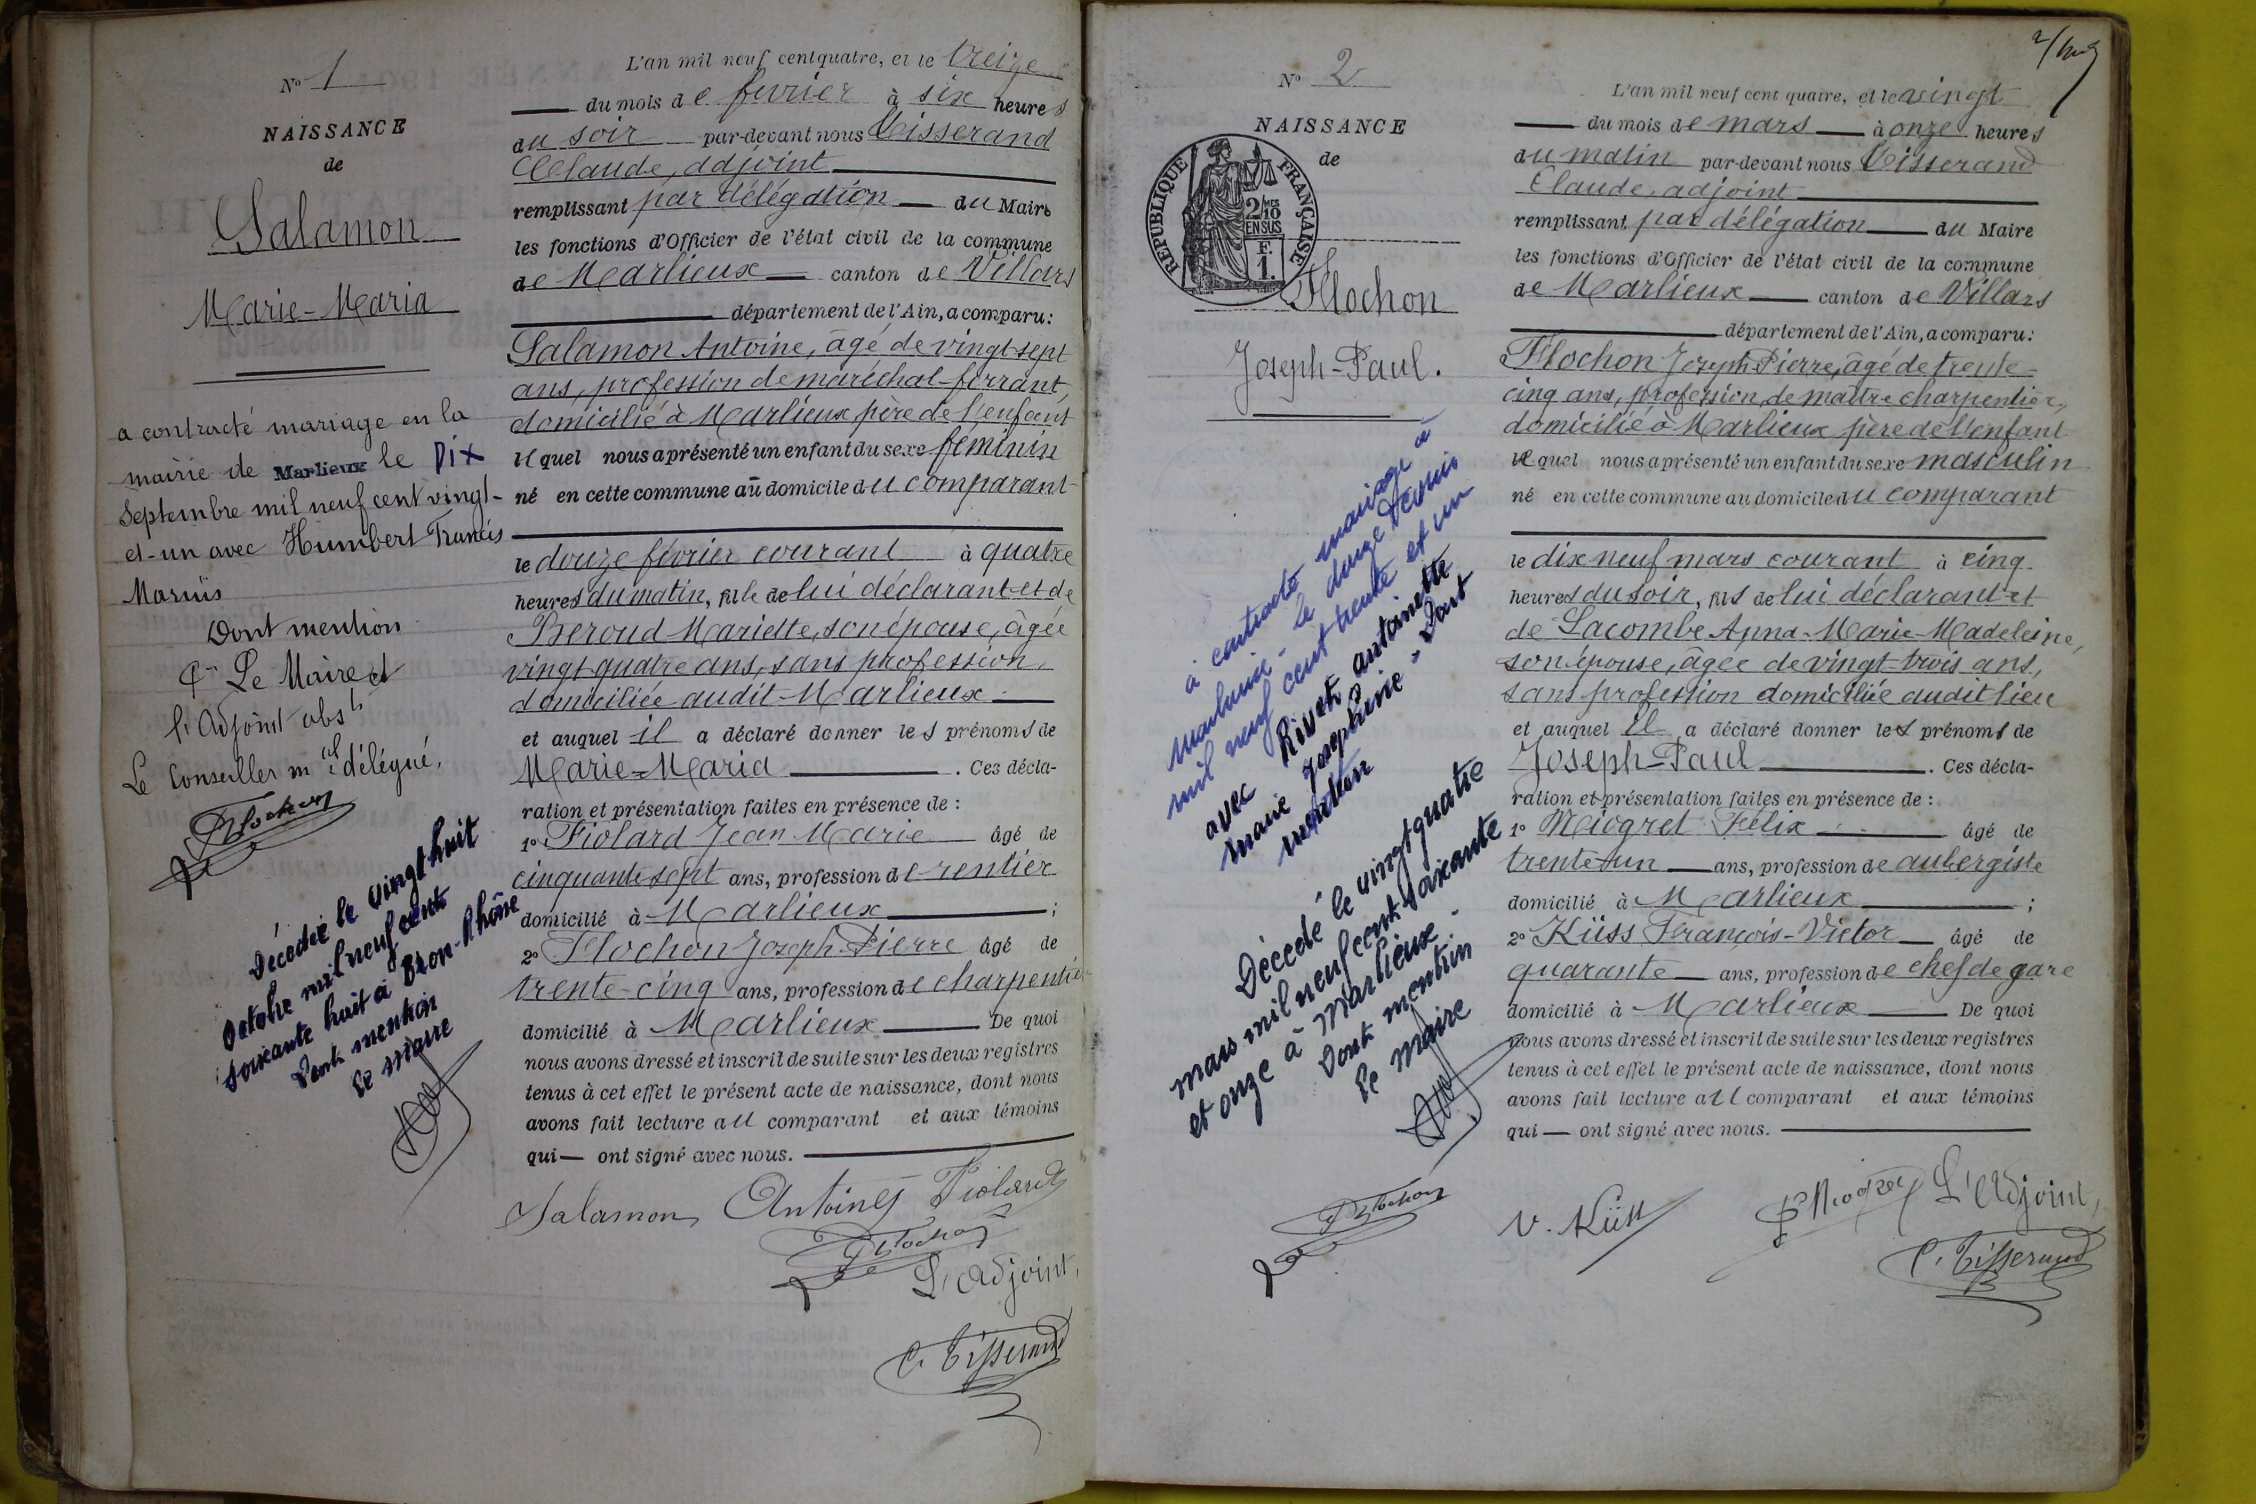 N° 1
NAISSANCE
de
Salamon
Marie-Maria
a contracté mariage en la
mairie de Marlieux le Dix
Septembre mil neuf cent vingt-
et-un avec Humbert Francis
Marius
Dont mention
Le Maire et
l'Adjoint abs^ts
Le Conseiller m^el délégué,
Flochon
Décédée le vingt huit
Octobre mil neuf cent
soixante huit à Bron-Rhône
Dont mention
Le Maire
L'an mil neuf cent quatre, et le treize
du mois de février à six heures
du soir par-devant nous Tisserand
Claude, adjoint
remplissant par délégation du Maire
les fonctions d'Officier de l'état civil de la commune
de Marlieux canton de Villars
département de l'Ain, a comparu:
Salamon Antoine, âgé de vingt-sept
ans, profession de maréchal-ferrant,
domicilié à Marlieux père de l'enfant
lequel nous a présenté un enfant du sexe féminin
né en cette commune au domicile du comparant
le douze février courant à quatre
heures du matin, fille de lui déclarant et de
Beroud Mariette, son épouse, âgée
vingt-quatre ans, sans profession,
domiciliée audit Marlieux
et auquel il a déclaré donner les prénoms de
Marie-Maria. Ces décla-
ration et présentation faites en présence de :
1° Fiolard Jean Marie âgé de
cinquante sept ans, profession de rentier
domicilié à Marlieux ;
2° Flochon Joseph-Pierre âgé de
trente-cinq ans, profession de charpentier
domicilié à Marlieux De quoi
nous avons dressé et inscrit de suite sur les deux registres
tenus à cet effet le présent acte de naissance, dont nous
avons fait lecture au comparant et aux témoins
qui — ont signé avec nous.
Salamon Antoine Fiolard
Flochon
L'Adjoint,
C. Tisserand
2/
N° 2
NAISSANCE
de
RÉPUBLIQUE FRANÇAISE
2/10 MES
EN SUS
F.
1.
Flochon
Joseph-Paul.
a contracté mariage à
le douze
mil neuf cent trente et un
avec Rivet Antoinette
Marie Joséphine - Dont
mention
Décédé le vingt quatre
mars mil neuf cent soixante
et onze à Marlieux -
Dont mention
Le Maire
Flochon
L'an mil neuf cent quatre, et le vingt
du mois de mars à onze heures
du matin par-devant nous Tisserand
Claude, adjoint
remplissant par délégation du Maire
les fonctions d'Officier de l'état civil de la commune
de Marlieux canton de Villars
département de l'Ain, a comparu:
Flochon Joseph-Pierre, âgé de trente-
cinq ans, profession de maître charpentier,
domicilié à Marlieux père de l'enfant
lequel nous a présenté un enfant du sexe masculin
né en cette commune au domicile du comparant
le dix neuf mars courant à cinq
heures du soir, fils de lui déclarant et
de Lacombe Anna-Marie-Madeleine,
son épouse, âgée de vingt-trois ans,
sans profession domiciliée audit lieu
et auquel il a déclaré donner les prénoms de
Joseph-Paul. Ces décla-
ration et présentation faites en présence de :
1° Miogret Félix âgé de
trente-un ans, profession de aubergiste
domicilié à Marlieux ;
2° Küss François-Victor âgé de
quarante ans, profession de chef de gare
domicilié à Marlieux De quoi
nous avons dressé et inscrit de suite sur les deux registres
tenus à cet effet le présent acte de naissance, dont nous
avons fait lecture au comparant et aux témoins
qui — ont signé avec nous.
V. Küss Miogret L'Adjoint,
C. Tisserand